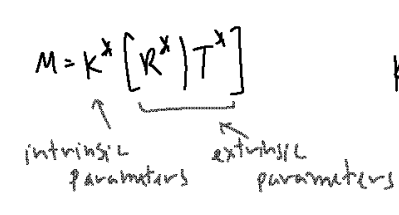 M = K* [R* | T*]
intrinsic parameters
extrinsic parameters